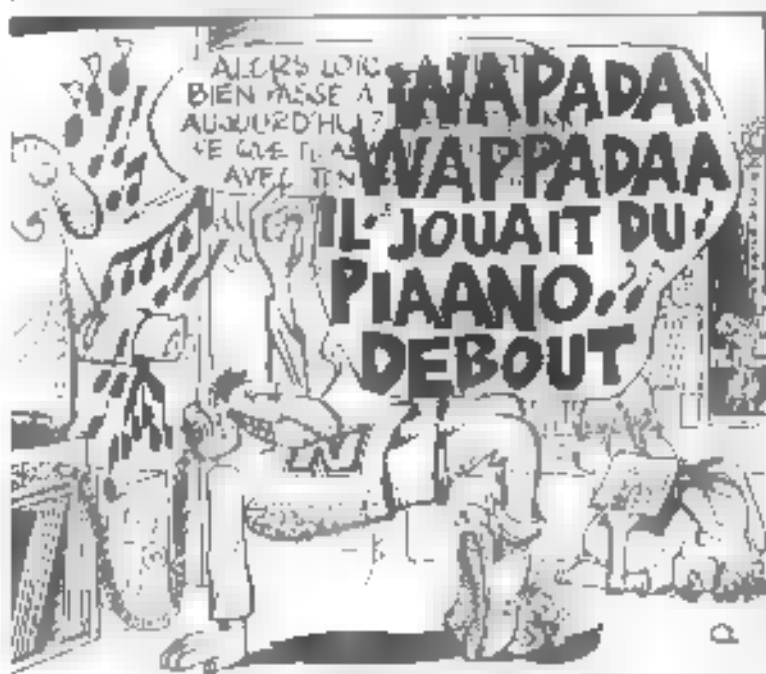 ALORS LOIC
BIEN PASSÉ A
AUJOURD'HUI?
CE QUE TU AS
AVEC TON
WAPADA:
WAPPADAA
IL JOUAIT DU
PIAANO
DEBOUT